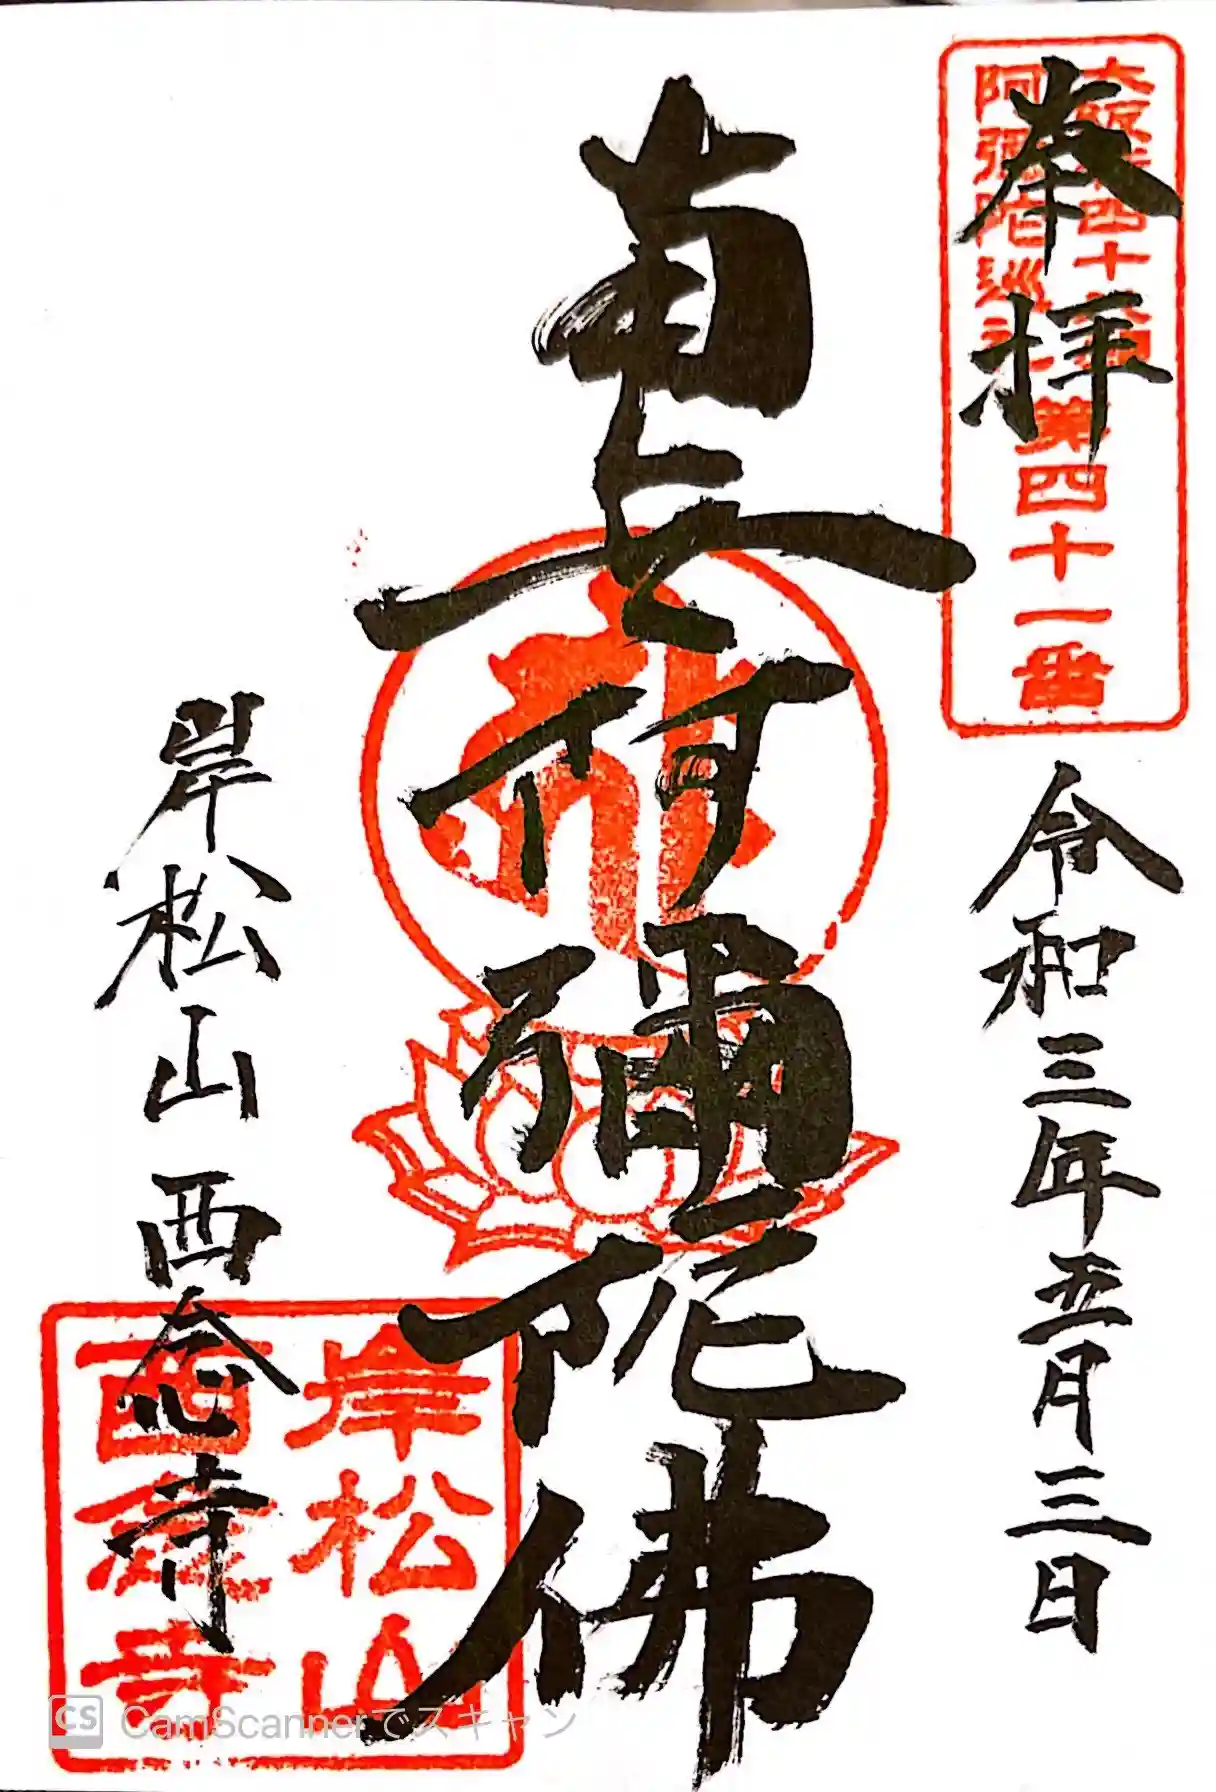 奉拝
大阪新四十八願
阿弥陀巡礼
第四十一番
令和三年五月三日
南無阿彌陀佛
岸松山 西念寺
岸松山
西念寺
CS CamScannerでスキャン